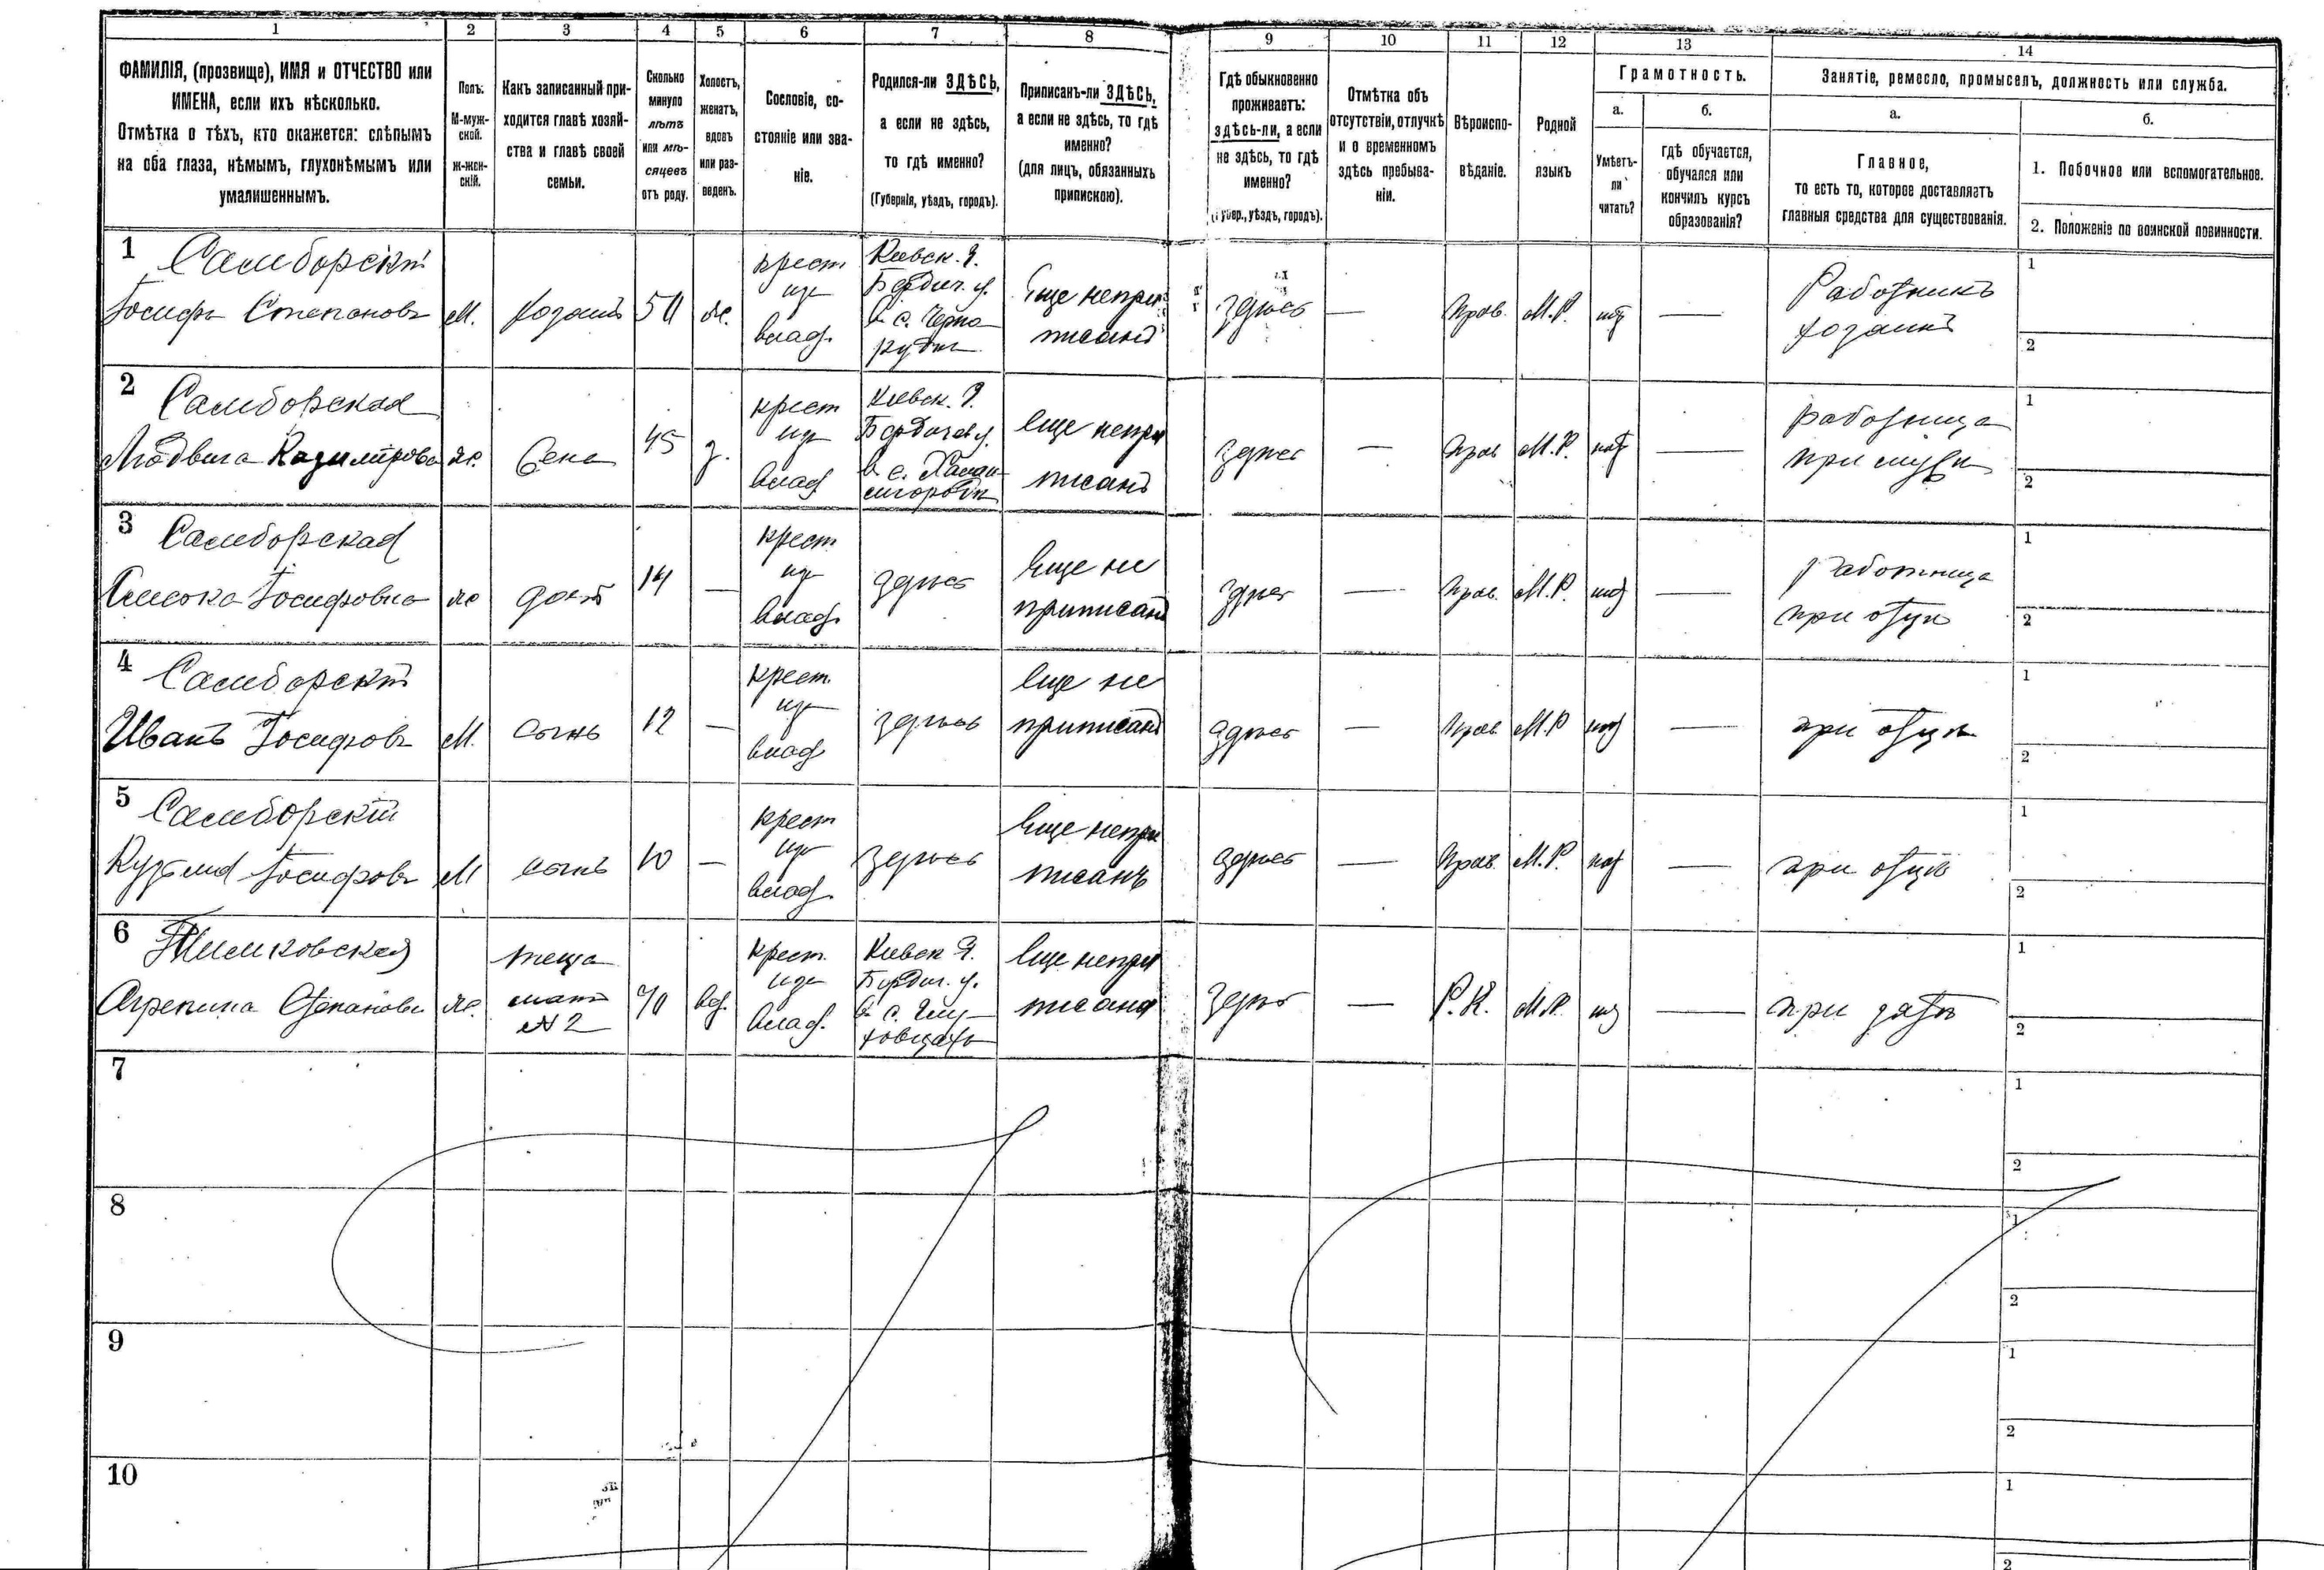 1 2 3 4 5 6 7 8 9 10 11 12 13 14
ФАМИЛІЯ, (прозвище), ИМЯ и ОТЧЕСТВО или
ИМЕНА, если ихъ нѣсколько.
Отмѣтка о тѣхъ, кто окажется: слѣпымъ
на оба глаза, нѣмымъ, глухонѣмымъ или
умалишеннымъ.
Полъ:
М-муж-
ской.
ж-жен-
скій.
Какъ записанный при-
ходится главѣ хозяй-
ства и главѣ своей
семьи.
Сколько
минуло
лѣтъ
или мѣ-
сяцевъ
отъ роду.
Холостъ,
женатъ,
вдовъ
или раз-
веденъ.
Сословіе, со-
стояніе или зва-
ніе.
Родился-ли ЗДѢСЬ,
а если не здѣсь,
то гдѣ именно?
(Губернія, уѣздъ, городъ).
Приписанъ-ли ЗДѢСЬ,
а если не здѣсь, то гдѣ
именно?
(для лицъ, обязанныхъ
припискою).
Гдѣ обыкновенно
проживаетъ:
здѣсь-ли, а если
не здѣсь, то гдѣ
именно?
(Губер., уѣздъ, городъ).
Отмѣтка объ
отсутствіи, отлучкѣ
и о временномъ
здѣсь пребыва-
ніи.
Вѣроиспо-
вѣданіе.
Родной
языкъ
Грамотность.
а.
Умѣетъ-
ли
читать?
б.
гдѣ обучается,
обучался или
кончилъ курсъ
образованія?
Занятіе, ремесло, промыселъ, должность или служба.
а.
Главное,
то есть то, которое доставляетъ
главныя средства для существованія.
б.
1. Побочное или вспомогательное.
2. Положеніе по воинской повинности.
1 Самборскій
Іосифъ Степановъ
М.
хозяинъ
50
ж.
крест
из
влад.
Кіевск. г.
Бердич. у.
в с. Черно
рудкѣ
Еще непри
писанъ
здѣсь
—
Прав.
М.Р.
нѣт
—
Работникъ
хозяинъ
1
2
2 Самборская
Людвига Казимірова
ж.
жена
45
з.
крест
из
влад
Кіевск. г.
Бердичев у.
в с.
городк
Еще непри
писанъ
здѣсь
—
Прав
М.Р.
нѣт
—
работница
при мужѣ
1
2
3 Самборская
Іосифовна
ж
дочь
14
—
крест
из
влад.
здѣсь
Еще не
приписанъ
здѣсь
—
Прав.
М.Р.
нѣт
—
работница
при отцѣ
1
2
4 Самборскій
Иванъ Іосифовъ
М.
сынъ
12
—
крест.
из
влад
здѣсь
Еще не
приписанъ
здѣсь
—
Прав.
М.Р
нѣт
—
при отцѣ
1
2
5 Самборскій
Кузьма Іосифовъ
М
сынъ
10
—
крест
из
влад.
здѣсь
Еще непри
писанъ
здѣсь
—
Прав.
М.Р.
нѣт
—
при отцѣ
1
2
6
Агрепина Степанова
ж.
теща
мать
№ 2
70
вд.
крест.
из
влад.
Кіевск г.
Бердич. у.
в с. Глу-
ховцахъ
Еще непри
писана
здѣсь
—
Р.К.
М.Р.
нѣт
—
при зятѣ
1
2
7
1
2
8
1
2
9
1
2
10
1
2